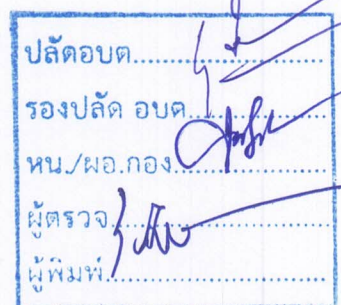 ปลัดอบต...........................
รองปลัด อบต....................
หน./ผอ.กอง.....................
ผู้ตรวจ...........................
ผู้พิมพ์...........................